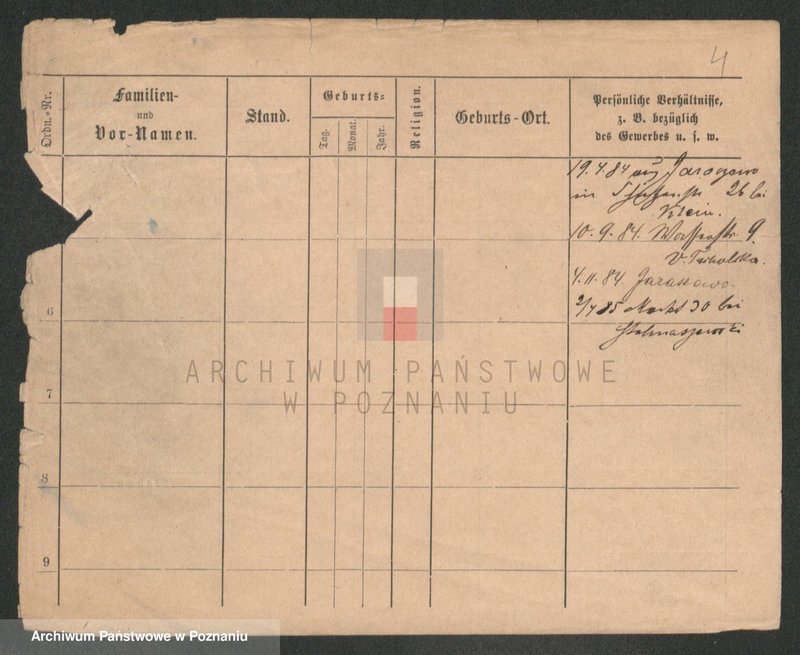 4
Ordn.-Nr.
Familien-
und
Vor-Namen.
Stand.
Geburts-
Tag.
Monat.
Jahr.
Religion.
Geburts-Ort.
Persönliche Verhältnisse,
z. B. bezüglich
des Gewerbes u. s. w.
19.4.84
in 26 bei
Klein.
10.9.84. Wasserstr. 9.
V.
4.11.84.
2/4 85 Markt 30 bei
6
7
8
9
ARCHIWUM PAŃSTWOWE
W POZNANIU
Archiwum Państwowe w Poznaniu